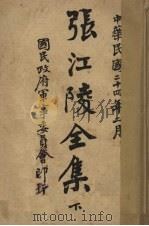 中華民國二十四年上月
張江陵全集
下
國民政府軍事委員會印行